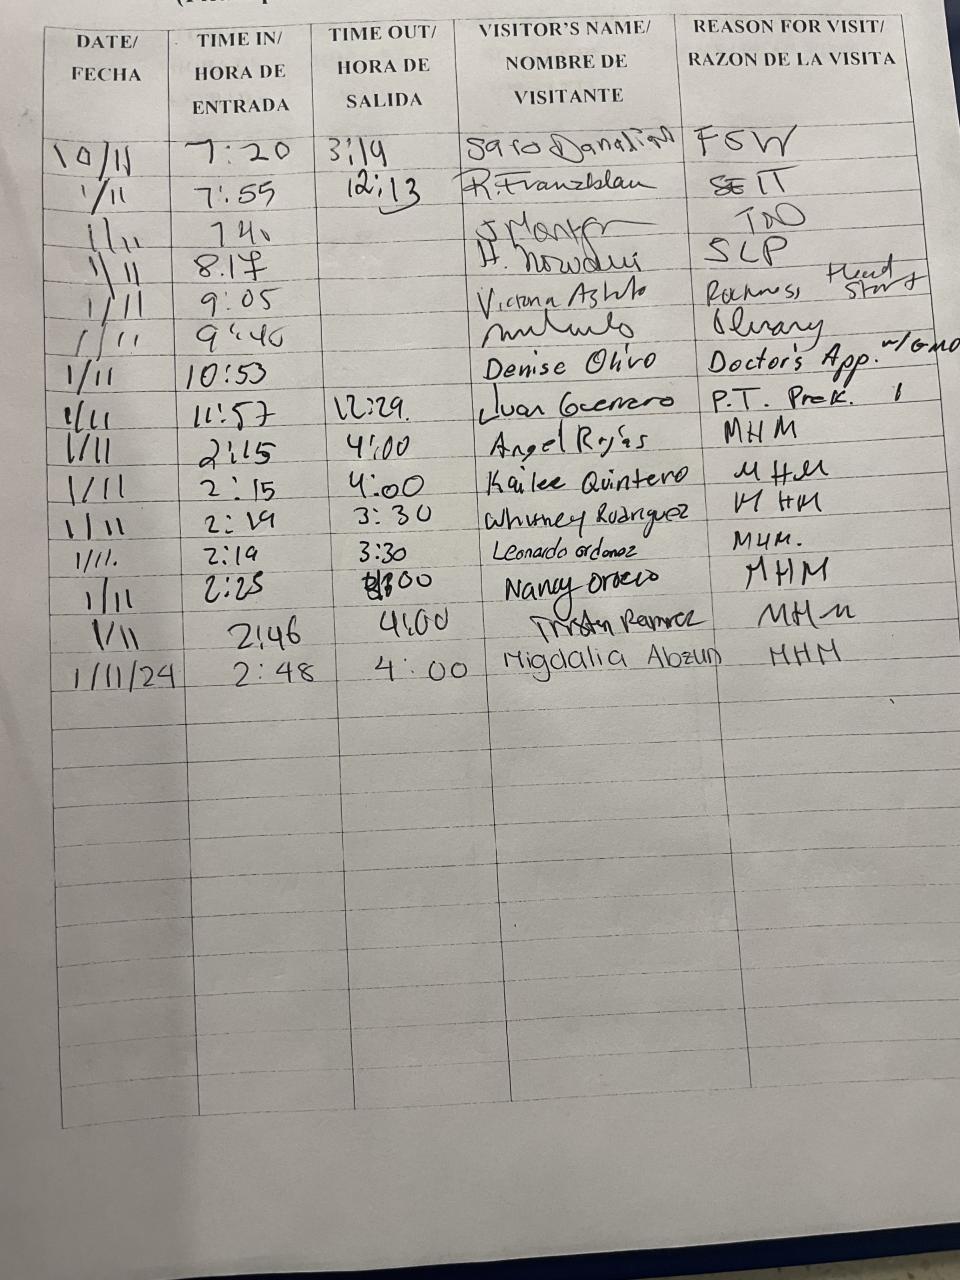 DATE/ TIME IN/ TIME OUT/ VISITOR'S NAME/ REASON FOR VISIT/
FECHA HORA DE HORA DE NOMBRE DE RAZON DE LA VISITA
ENTRADA SALIDA VISITANTE
10/11 7:20 3:19 FSW
1/11 7:55 12:13 R. Franzblau SEIT
1/11 740
1/11 8.17 H. SLP
1/11 9:05 Victoria Head Start
1/11 9:40
1/11 10:53 Denise Olivo Doctor's App. w/GMO
1/11 11:57 12:29. Juan Guerrero P.T. PreK.
1/11 2:15 4:00 Angel Rojas MHM
1/11 2:15 4:00 Kailee Quintero MHM
1/11 2:19 3:30 Whitney Rodriguez MHM
1/11. 2:19 3:30 Leonardo ordonez MHM.
1/11 2:25 Nancy Orozco MHM
1/11 2:46 4:00 Tristen Ramirez MHM
1/11/24 2:48 4:00 Migdalia Abzun MHM